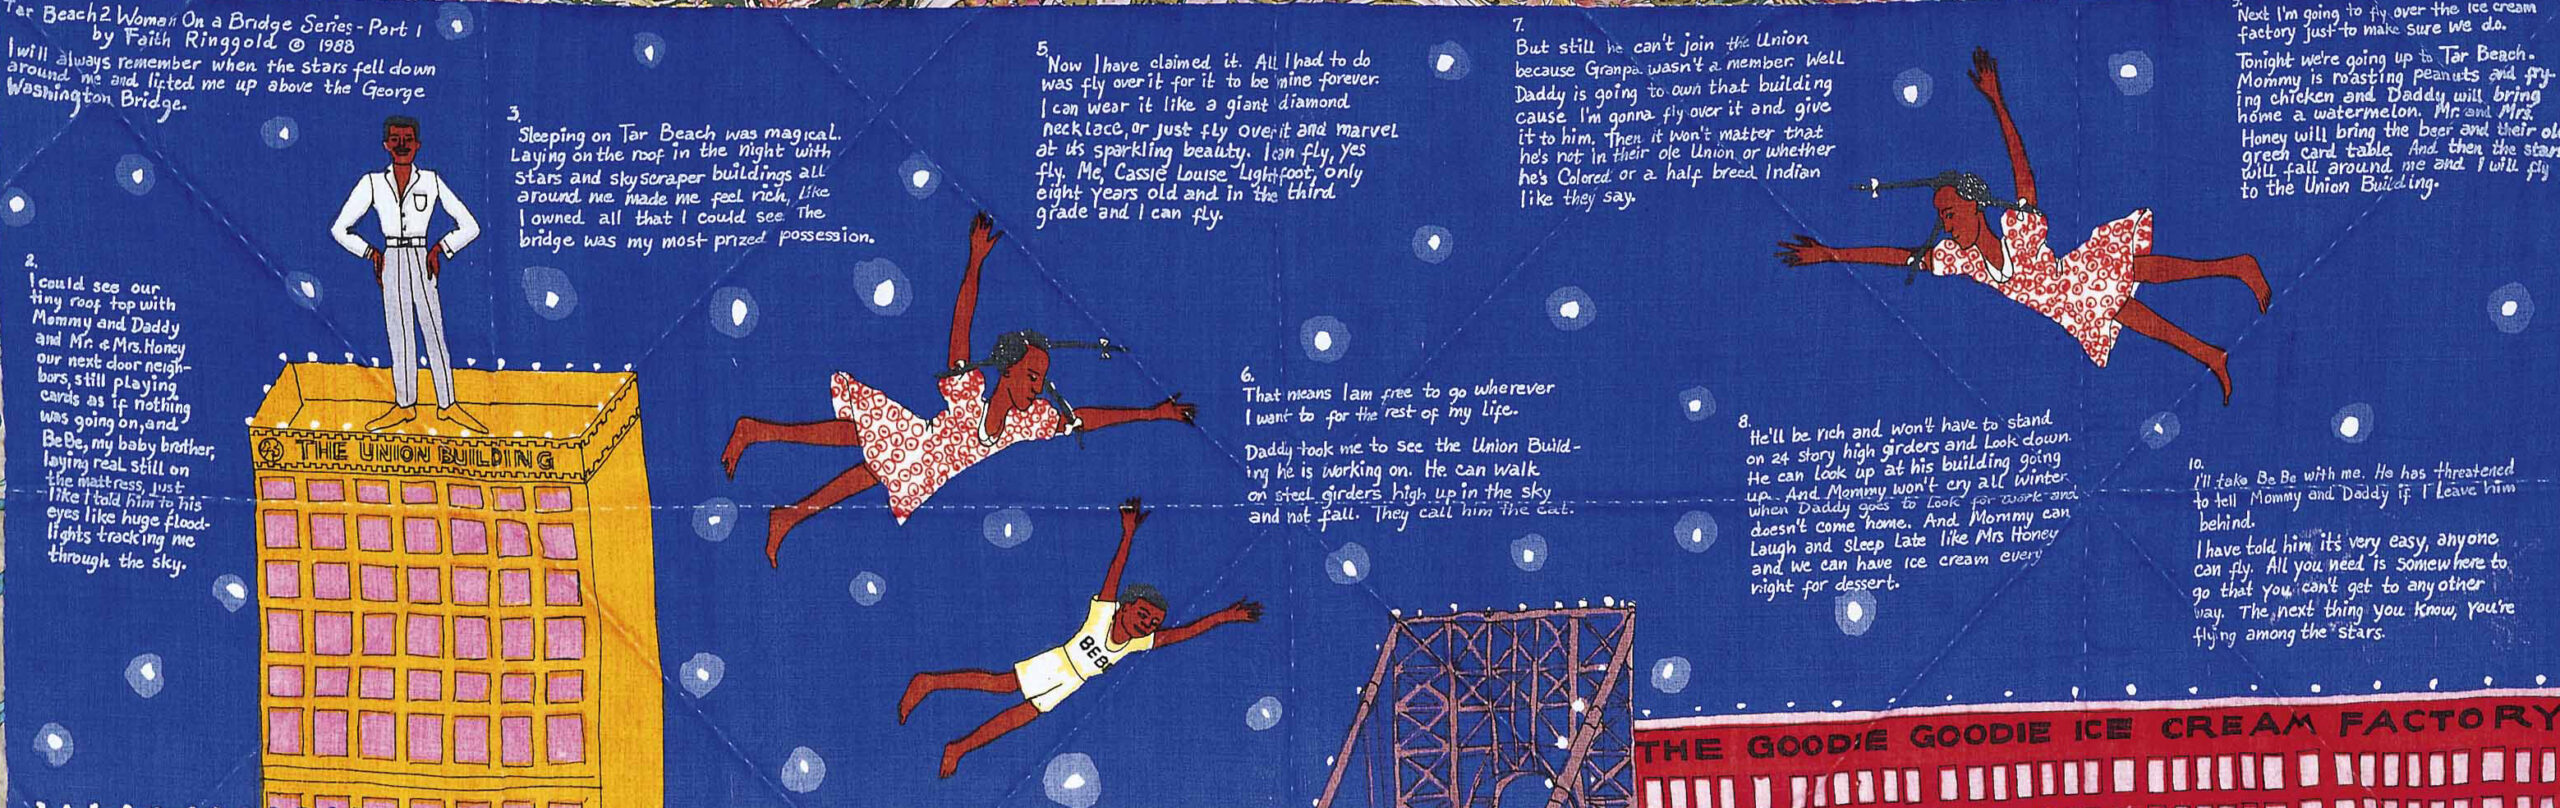 Tar Beach 2 Woman On a Bridge Series - Part 1
by Faith Ringgold © 1988
I will always remember when the stars fell down
around me and lifted me up above the George
Washington Bridge.
2.
I could see our
tiny roof top with
Mommy and Daddy
and Mr. & Mrs. Honey
our next door neigh-
bors, still playing
cards as if nothing
was going on, and
BeBe, my baby brother,
laying real still on
the mattress, just
like I told him to his
eyes like huge flood-
lights tracking me
through the sky.
THE UNION BUILDING
3.
Sleeping on Tar Beach was magical.
Laying on the roof in the night with
stars and skyscraper buildings all
around me made me feel rich, like
I owned all that I could see. The
bridge was my most prized possession.
5.
Now I have claimed it. All I had to do
was fly over it for it to be mine forever.
I can wear it like a giant diamond
necklace, or just fly over it and marvel
at its sparkling beauty. I can fly, yes
fly. Me, Cassie Louise Lightfoot, only
eight years old and in the third
grade and I can fly.
BEBE
6.
That means I am free to go wherever
I want to for the rest of my life.
Daddy took me to see the Union Build-
ing he is working on. He can walk
on steel girders high up in the sky
and not fall. They call him the Cat.
7.
But still he can't join the Union
because Granpa wasn't a member. Well
Daddy is going to own that building
cause I'm gonna fly over it and give
it to him. Then it won't matter that
he's not in their ole Union or whether
he's Colored or a half breed Indian
like they say.
8.
He'll be rich and won't have to stand
on 24 story high girders and look down.
He can look up at his building going
up. And Mommy won't cry all winter
when Daddy goes to look for work and
doesn't come home. And Mommy can
laugh and sleep late like Mrs Honey
and we can have ice cream every
night for dessert.
Next I'm going to fly over the ice cream
factory just to make sure we do.
Tonight we're going up to Tar Beach.
Mommy is roasting peanuts and fry-
ing chicken and Daddy will bring
home a watermelon. Mr. and Mrs.
Honey will bring the beer and their ole
green card table. And then the stars
will fall around me and I will fly
to the Union Building.
10.
I'll take Be Be with me. He has threatened
to tell Mommy and Daddy if I leave him
behind.
I have told him it's very easy, anyone
can fly. All you need is somewhere to
go that you can't get to any other
way. The next thing you know, you're
flying among the stars.
THE GOODIE GOODIE ICE CREAM FACTORY